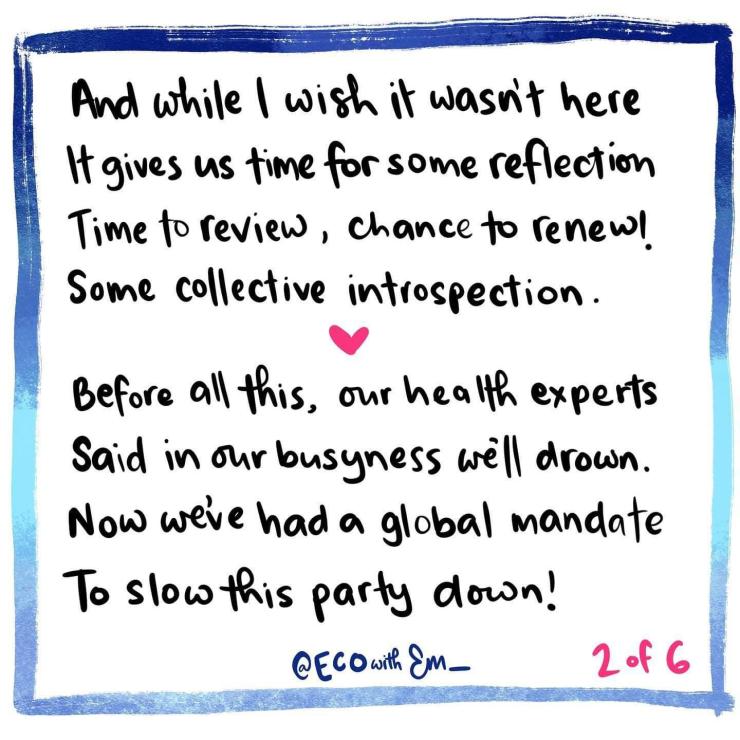 And while I wish it wasn't here
It gives us time for some reflection
Time to review, chance to renew!
Some collective introspection.
Before all this, our health experts
Said in our busyness we'll drown.
Now we've had a global mandate
To slow this party down!
@ECO with Em_
2 of 6